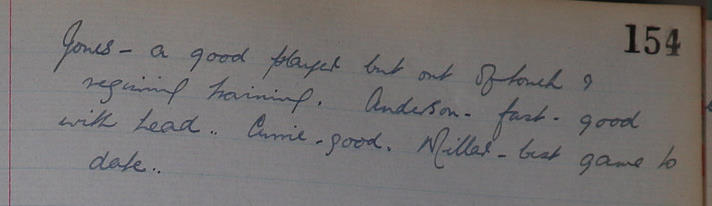 154
Jones - a good player but out of touch &
requiring training. Anderson - fast - good
with head.. Currie - good. Millar - best game to
date..